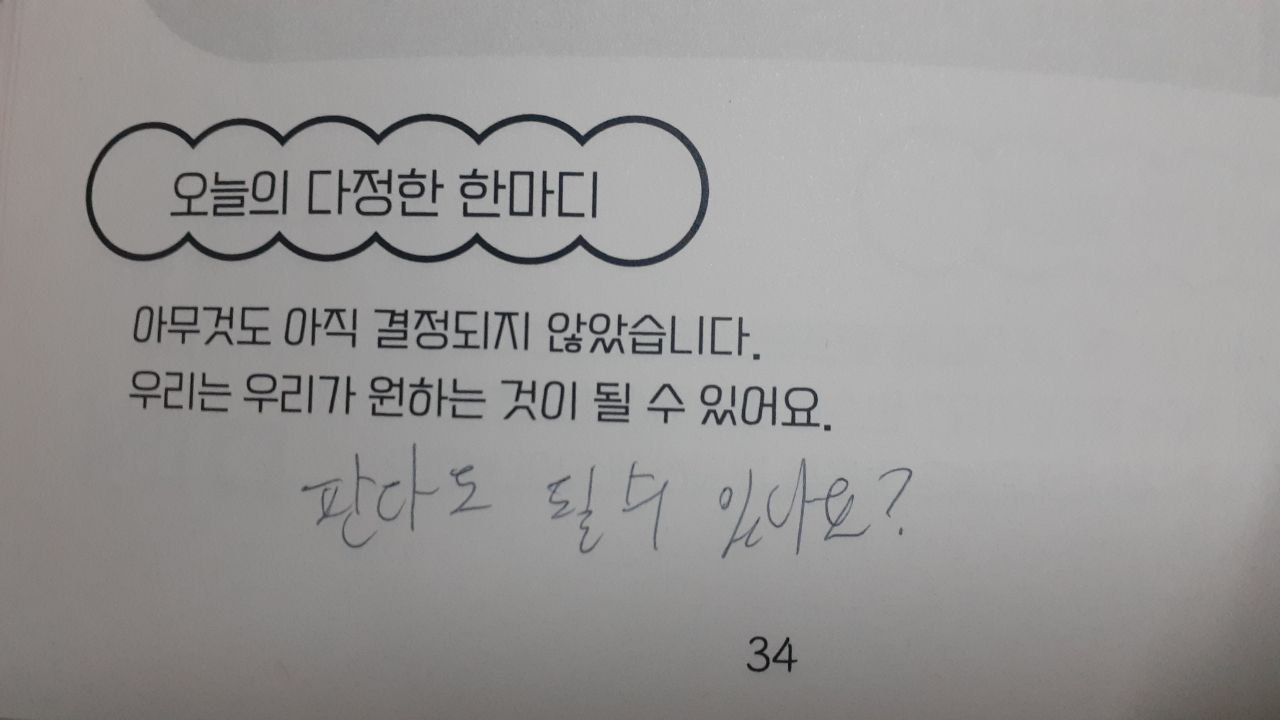 오늘의 다정한 한마디
아무것도 아직 결정되지 않았습니다.
우리는 우리가 원하는 것이 될 수 있어요.
판다도 될 수 있나요?
34